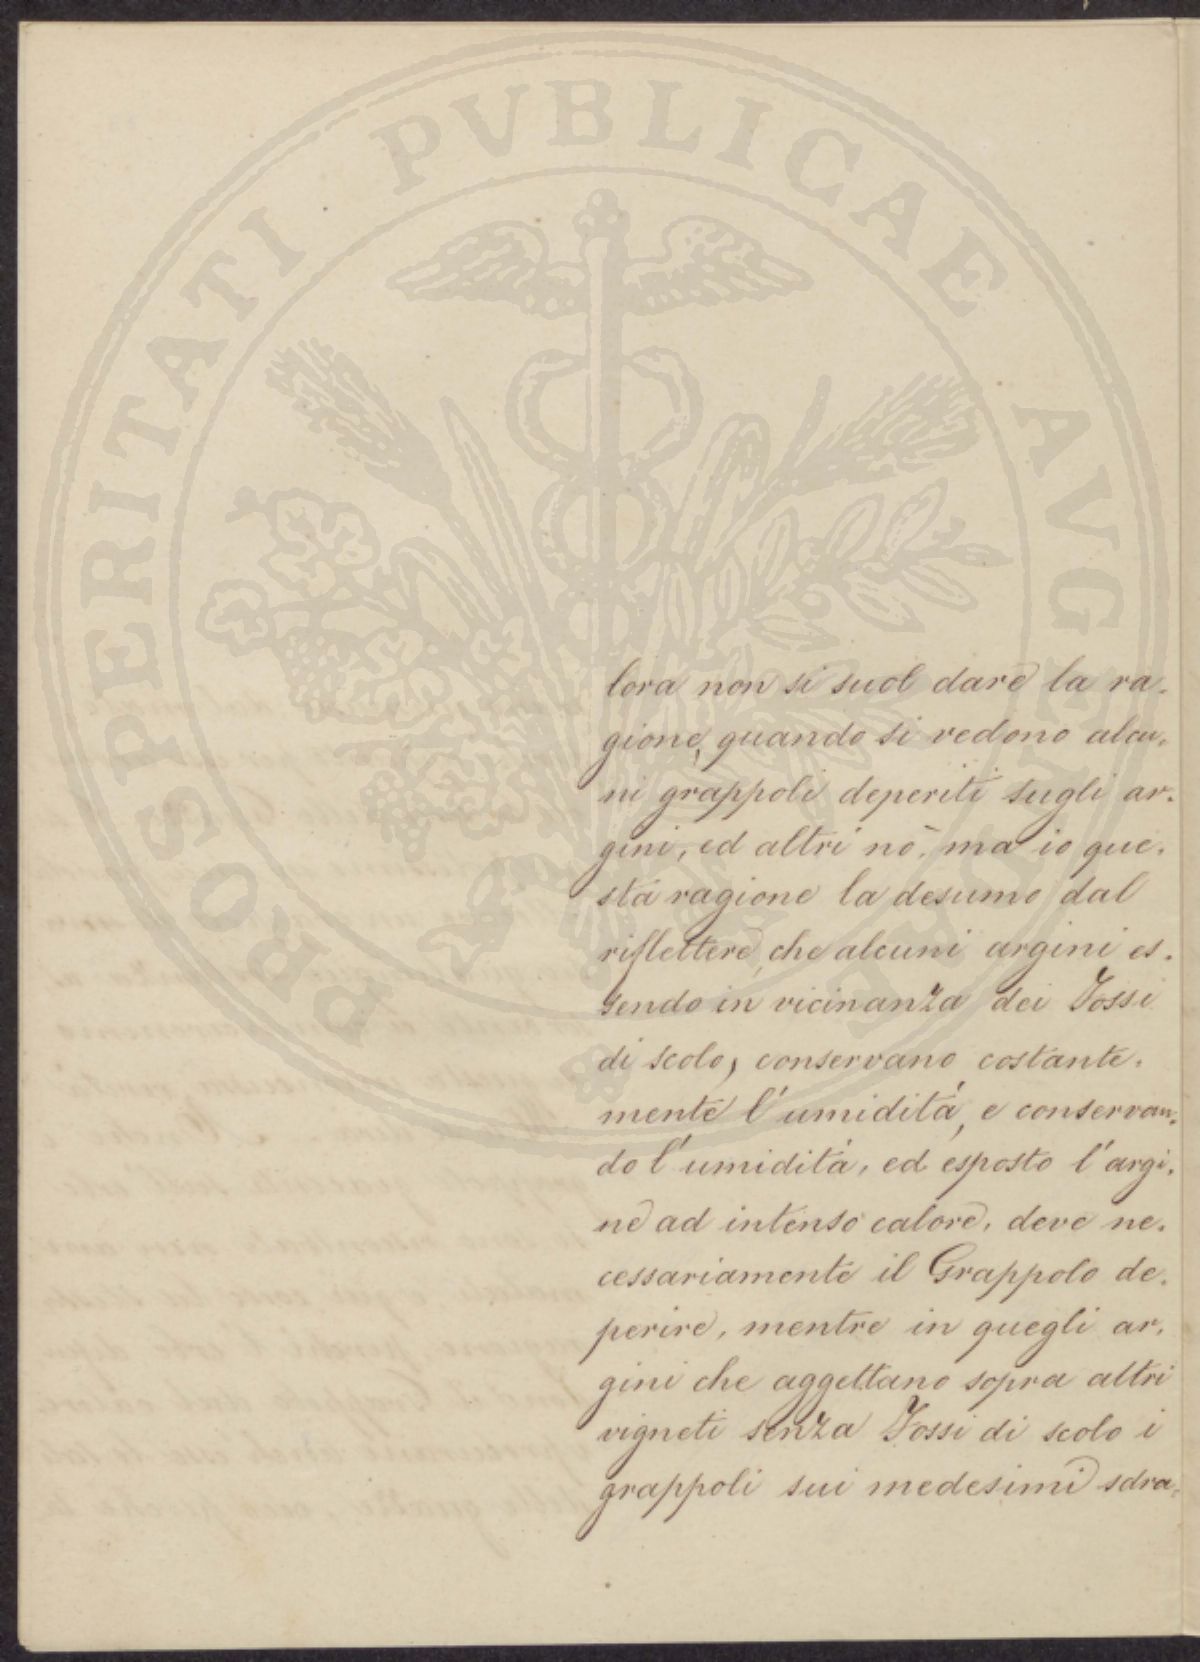 PROSPERITATI PVBLICAE AVGENDAE
lora non si suol dare la ra.
gione, quando si vedono alcu.
ni grappoli deperiti sugli ar.
gini, ed altri nò, ma io que.
sta ragione la desumo dal
riflettere, che alcuni argini es.
sendo in vicinanza dei Fossi
di scolo, conservano costante.
mente l'umidità, e conservan.
do l'umidità, ed esposto l'argi.
ne ad intenso calore, deve ne.
cessariamente il Grappolo de.
perire, mentre in quegli ar.
gini che aggettano sopra altri
vigneti senza Fossi di scolo i
grappoli sui medesimi sdra.